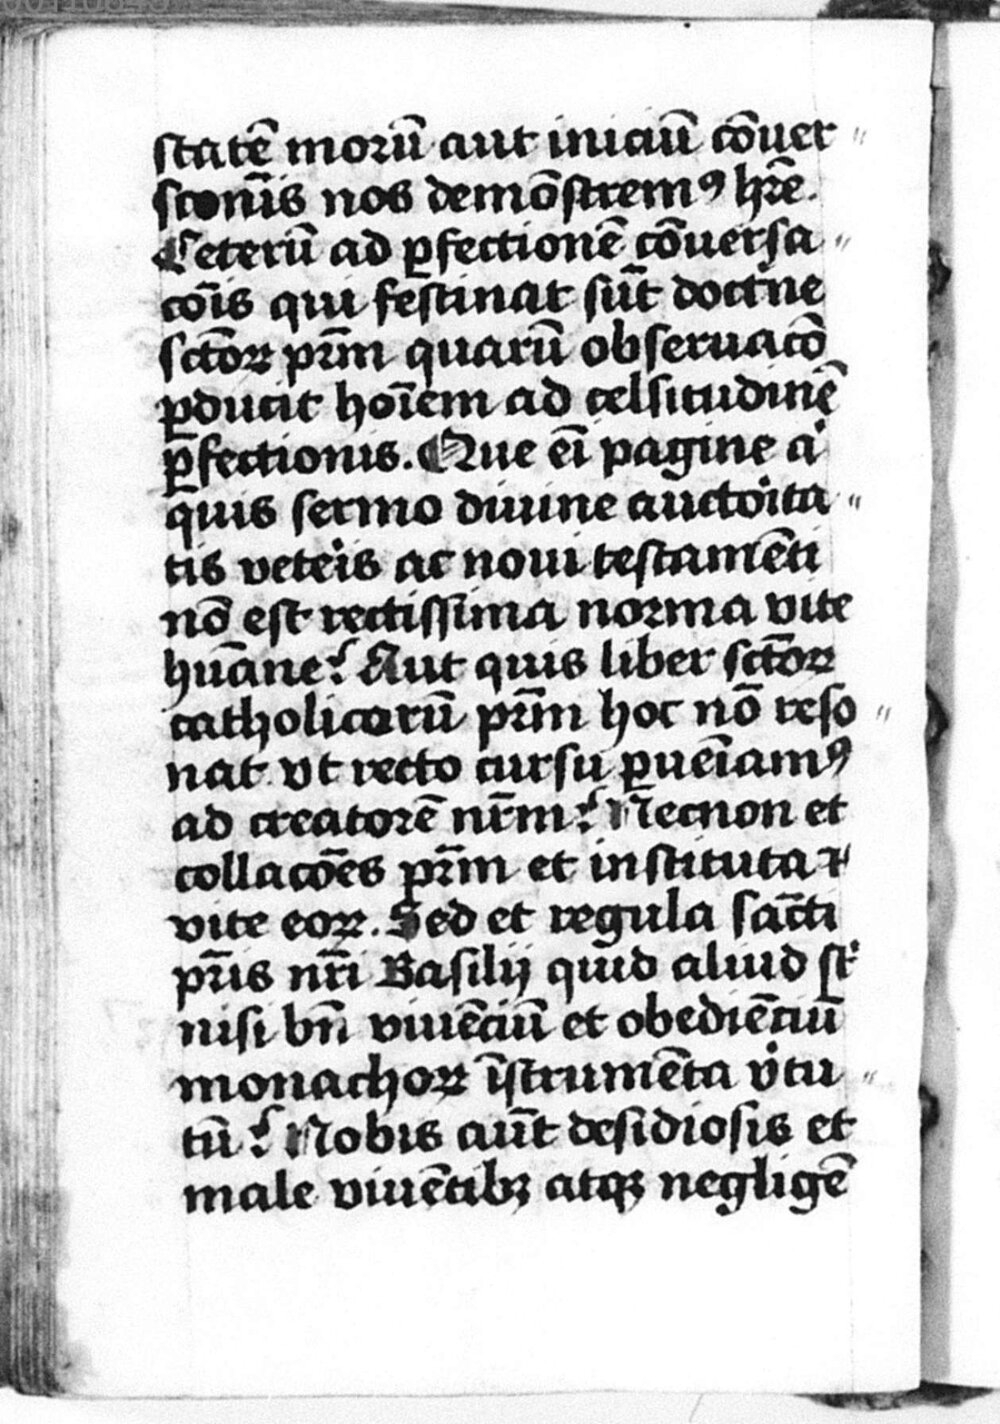 statē moꝛū aut iniciū cōuer〃
sconīs nos demōstremꝰ hr̄e.
Ceterū ad ꝑfectionē cōuersa〃
cōis qui festinat sūt doctͥne
sctōꝝ pr̄m quarū obseruacō
ꝑducit hoīem ad celsitudinē
ꝑfectionis. Que eī pagine aͥ
quis sermo diuine auctoͥita〃
tis veteͥis ac noui testamēti
nō est rectissima noꝛma vite
huāne? Aut quis liber sctōꝝ
catholicorū pr̄m hoc nō reso〃
nat vt recto cursu ꝑueīamꝰ
ad creatoꝛē nr̄m? Necnon et
collacōes pr̄m et instituta ⁊
vite eoꝝ. Sed et regula sācti
pr̄is nr̄i Basilij quid aliud st̄
nisi bn̄ viuēciū et obediēciū
monachoꝝ īstrumēta vͥtu〃
tū? Nobis aūt desidiosis et
male viuētibꝫ atqꝫ negligē